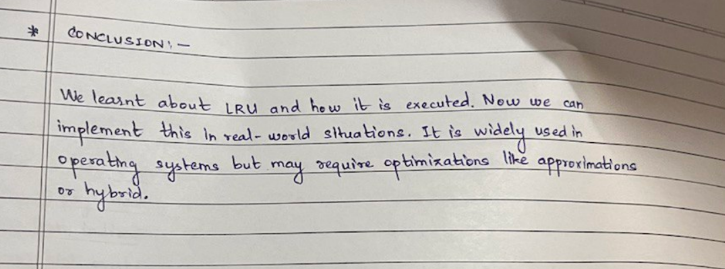 * CONCLUSION :-
We learnt about LRU and how it is executed. Now we can
implement this in real-world situations. It is widely used in
operating systems but may require optimizations like approximations
or hybrid.